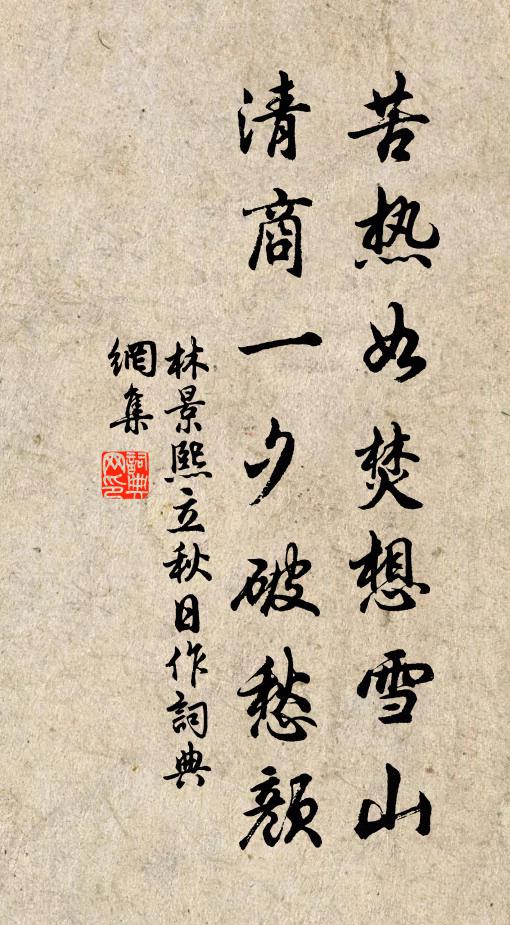 苦热如焚想雪山
清商一夕破愁颜
林景熙立秋日作詞典
網集
詞典
网印